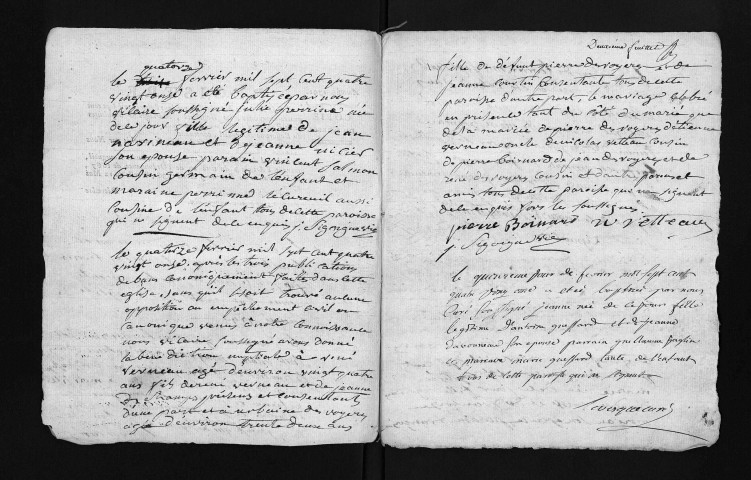 quatorze
le huit fevrier mil sept cent quatre
vingt onze a été baptisée par nous
vicaire soussigné julie perrine née
de ce jour fille legitime de jean
navineau et de jeanne
son epouse parain vincent salmon
cousin germain de l'enfant et
maraine perrinne lecureuil aussi
cousine de l'enfant tous de cette paroisse
qui ne signent de ce enquis
le quatorze fevrier mil sept cent quatre
vingt onze apres les trois publications
de bans canoniquement faites dans cette
eglise sans qu'il se soit trouvé aucune
opposition ou empechement civil ou
canonique venus à notre connoissance
nous vicaire soussigné avons donné
la benediction nuptiale à rené
verneau agé d'environ vingt quatre
ans fils de rené verneau et de jeanne
presens et consentants
d'une part et a urbaine des voyers
agée d'environ trente deux ans
Deuxieme feuillet
fille de défunt pierre des voyers et de
jeanne consentante tous de cette
paroisse d'autre part, le mariage célébré
en presence tant du côté du marié que
de la mariée de pierre des voyers
verneau oncle de nicolas velleau cousin
de pierre boinard de jean des voyers et de
rené des voyers cousin et d'autres parens et
amis tous de cette paroisse qui ne signent
de ce enquis fors les soussignés
pierre Boinard n velleau
le quinzieme jour de fevrier mil sept cent
quatre vingt onze a été baptisée par nous
curé soussigné jeanne née de ce jour fille
legitime d'antoine guessard et de jeanne
davonneau son epouse parrain guillaume
et mareine marie guessard tante de l'enfant
tous de cette paroisse qui ne signent